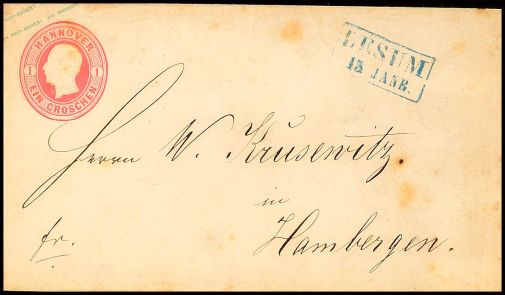 HANNOVER
1 1
EIN GROSCHEN
LESUM
15 JANR.
Herrn W. Krusewitz.
in
Hambergen.
fr.